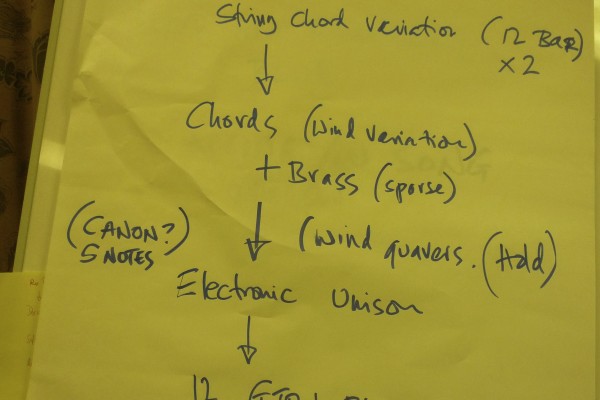 String Chord Variation (12 BAR)
x 2
Chords (Wind Variation)
+ Brass (sparse)
(CANON?)
5 NOTES
(Wind quavers. (Hold)
Electronic Unison
12